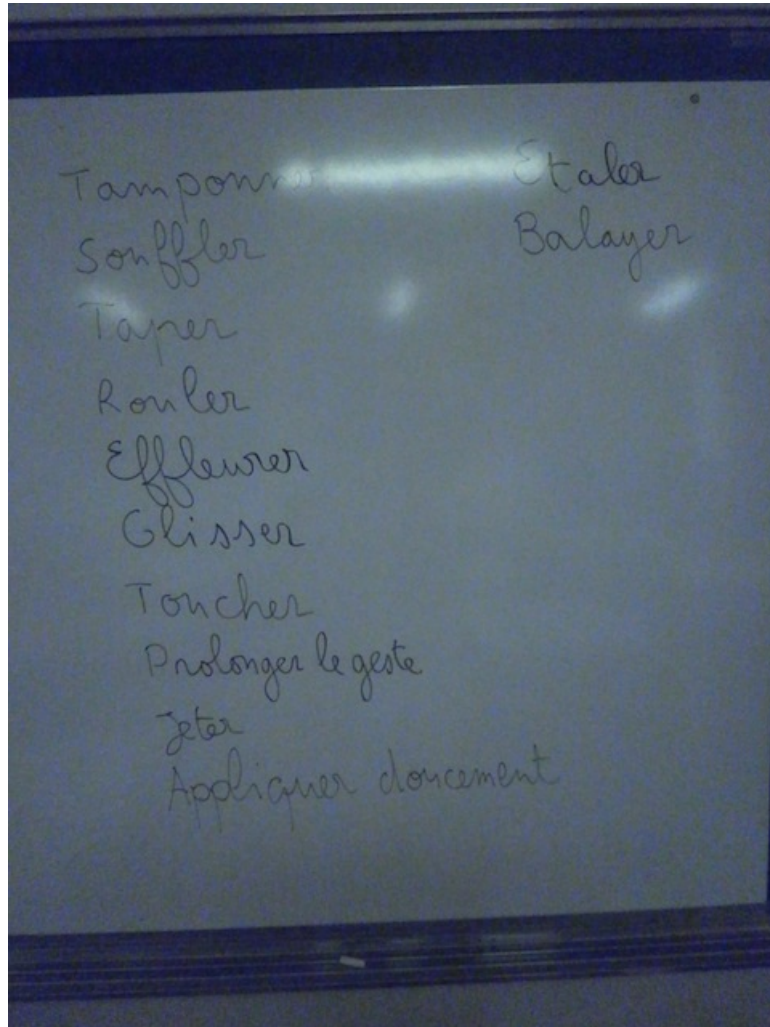 Tamponner
Souffler
Taper
Rouler
Effleurer
Glisser
Toucher
Prolonger le geste
Jeter
Appliquer doucement
Etaler
Balayer